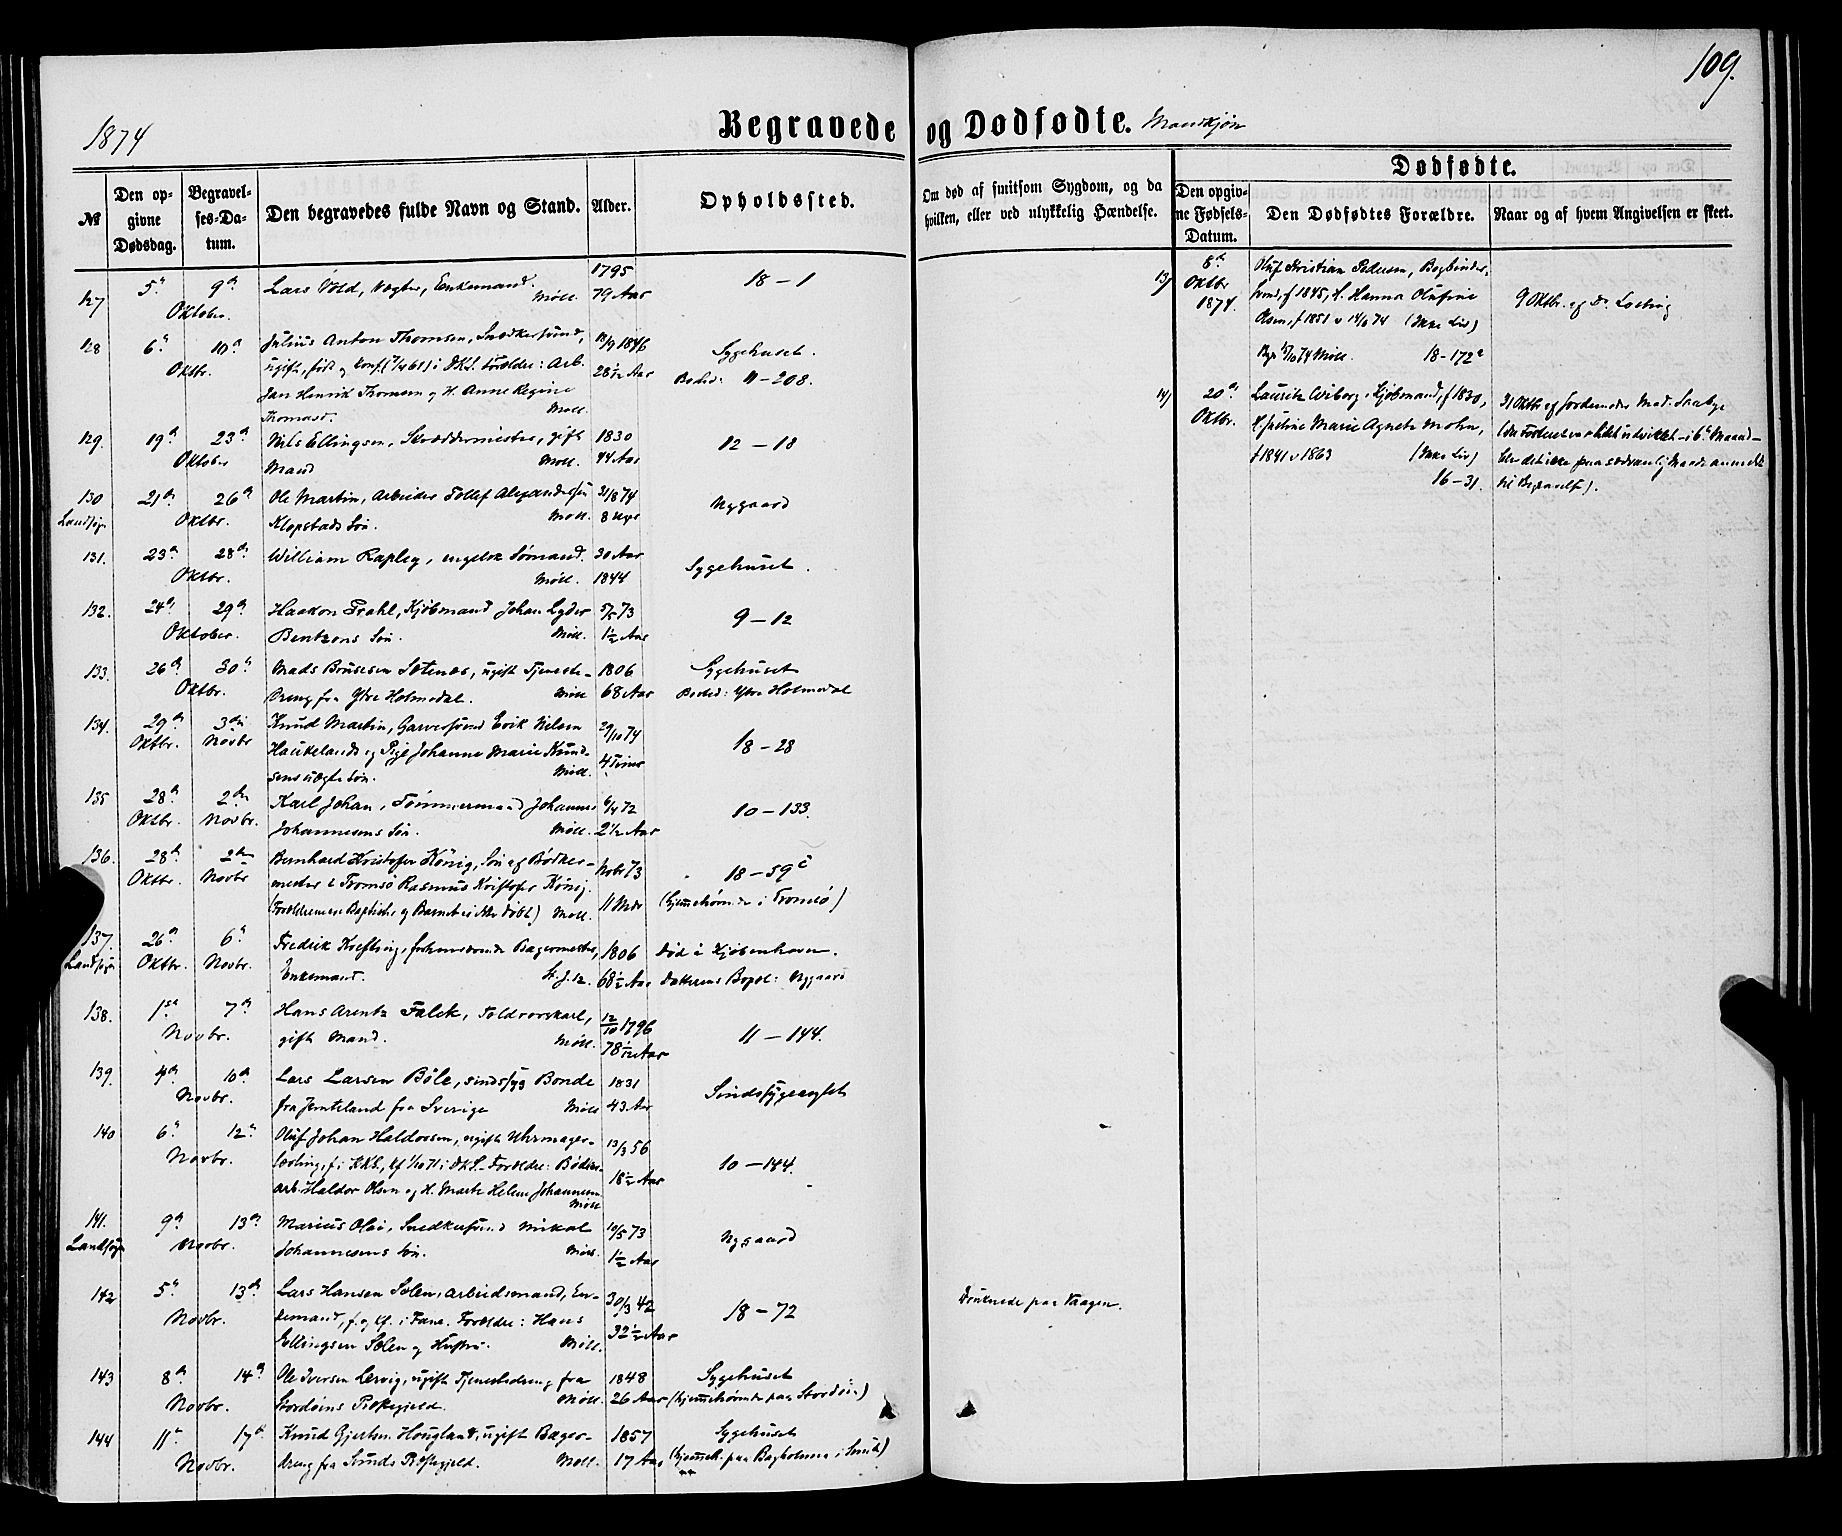 109.
1874
Begravede og Dødfødte. Mandkjøn
№
Den opgivne Dødsdag.
Begravelses-Datum.
Den begravedes fulde Navn og Stand.
Alder.
Opholdssted.
Om død af smitsom Sygdom, og da hvilken, eller ved ulykkelig Hændelse.
Dødfødte.
Den opgivne Fødsels-Datum.
Den Dødfødtes Forældre.
Naar og af hvem Angivelsen er skeet.
127 5te 9de Oktober Lars Vold, Vægter, Enkemand. Møll. 1795 79 Aar 18 – 1
128 6te 10de Oktbr. Julius Anton Thomsen, Snedkersvend,
ugift, født og konf. i DKS. Forældre: Arb.
Jan Henrik Thomsen og H. Anne Regine
Thomasd. Møll. 1846 28 1/12 Aar Sygehuset. Bosted: 11 – 208.
129. 19de 23de Oktober Nils Ellingsen, Skræddermester, gift
Mand Møll. 1830 44 Aar 12 – 18
130 Landsogn 21de 26de Oktbr. Ole Martin, Arbeider Tollef Alexandersen
Klopstads Søn. Møll. 31/8 74 8 Uger Nygaard
131. 23de 28de Oktbr. William Rapley, engelsk Sømand. Møll. 30 Aar 1844 Sygehuset.
132. 24de 29de Oktober. Haakon Prahl, Kjøbmand Johan Lyder
Bentzens Søn. Møll. 5/5 73 1½ Aar 9 – 12
133. 26de 30te Oktbr. Mads Brusesen Sætenes, ugift Tjeneste-
dreng fra Ytre Holmedal. Møll 1806 68 Aar Sygehuset Bosted: Ytre Holmedal
134. 29de Oktbr. 3die Novbr Knud Martin, Garversvend Erik Nielsen
Haukelands og Pige Johanne Marie Knud-
sens uægte Søn. Møll. 29/10 74 4 Timer 18 – 28
135 28de Oktbr. 2den Novbr. Karl Johan, Tømmermand Johannes
Johannesens Søn. Møll. 6/4 72 2½ Aar 10 – 133.
136. 28de Oktbr. 2den Novbr Bernhard Kristofer König, Søn af Bødker-
mester i Tromsø Rasmus Kristofer König.
(Forældrene ere Baptister og Barnet ei ikke døbt) Møll. Nobr 73 11 Mdr 18 – 59c (hjemmehørende i Tromsø)
137. Landsogn 26de Oktbr. 6te Novbr. Fredrik Krefting, forhenværende Bagermester,
Enkemand. St. J. 12. 1806 68½ Aar død i Kjøbenhavn. Datterens Bopæl: Nygaard
138. 1ste 7de Novbr. Hans Arentz Falck, Toldroerskarl,
gift Mand. Møll. 12/10 1796 78 1/12 Aar 11 – 144.
139. 4de 10de Novbr. Lars Larsen Böle, sindssyg Bonde
fra Jemteland fra Sverige Møll 1831 43 Aar Sindssygeasylet
140 6te 12te Novbr. Oluf Johan Haldorsen, ugift Uhrmager-
lærling, f. i KKS., kf 1/10 71 i DKS. Forældre: Bødker-
arb. Haldor Olsen og H. Marte Helene Johannesen
Møll 13/3 56 18½ Aar 10 – 144.
141. Landsogn 9de 13de Novbr. Marius Olai, Snedkersvend Mikal
Johannesens Søn. Møll. 10/5 73 1½ Aar Nygaard
142 5te 13de Novbr. Lars Hansen Solen, Arbeidsmand, En-
kemand, f. og kf. i Fane. Forældre: Hans
Ellingsen Solen og Hustru. Møll. 30/3 42 32½ Aar 18 – 72 Druknede paa Vaagen.
143 8de 14de Novbr. Ole Iversen Lervig, ugift Tjenestedreng fra
Stordøens Præstegjeld. Møll. 1848 26 Aar Sygehuset (hjemmehørende paa Stordøen)
144 11te 17de Novbr. Knud Gjertsen Hougland, ugift Bager-
dreng fra Sunds Præstegjeld. Møll. 1857 17 Aar Sygehuset (hjemmeh. paa Bagholmen i Sund)
13) 8de Oktbr 1874. Oluf Kristian Pedersen, Bogbinder-
svend, f 1845, H. Hanna Olufine
Olsen, f 1851 (Ikke Liv)
Møll. 18 – 172a
9 Oktbr. af Dr. Loeting
14) 20de Oktbr. Lauritz Wiborg, Kjøbmand, f 1830,
H. Justine Marie Agnete Mohn,
f 1841 v 1863 (Ikke Liv)
16 – 31.
31 Oktbr af Jordemoder Mad. Saaby
(da Fosteret var lidet udviklet – i 6te Maaned –
blev det ikke paa sædvanlig Maade anmeldt
til Begravelse).